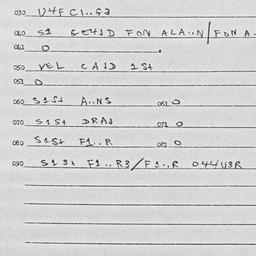 030 U4F C1..G3
040 S1 GE4JD FON ALA..N/FON A.
041 O
050 VEL CAJD 1 St
051 O
060 S1St A..NS 061 O
070 S1St DRAJ 072 O
080 S1St F1..R 082 O
090 S1St F1..R3/F1..R 044U3R